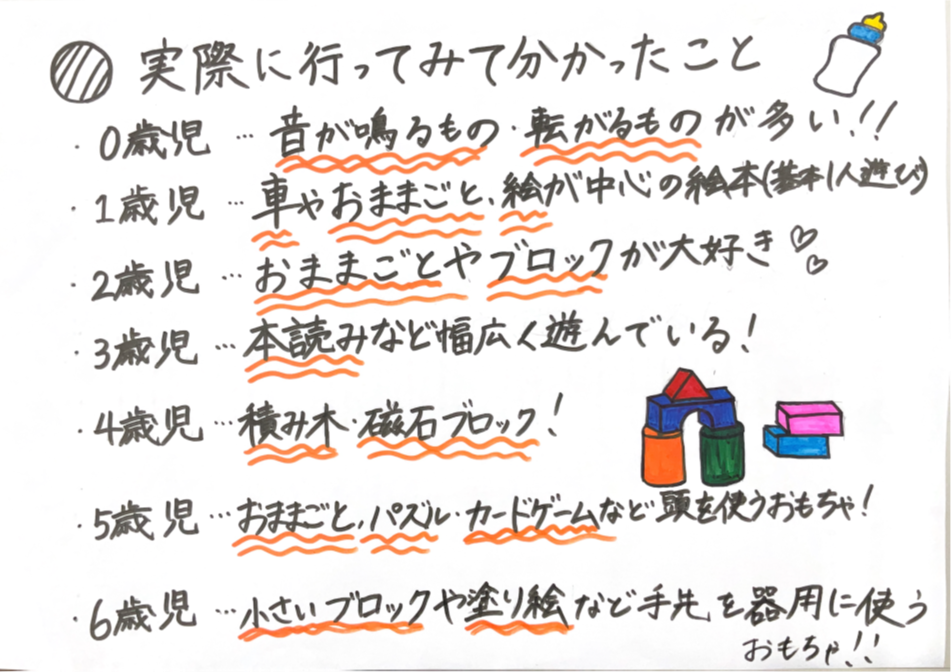 実際に行ってみて分かったこと
・0歳児…音が鳴るもの・転がるものが多い!!
・1歳児…車やおままごと、絵が中心の絵本(基本1人遊び)
・2歳児…おままごとやブロックが大好き♡♡
・3歳児…本読みなど幅広く遊んでいる!
・4歳児…積み木・磁石ブロック!
・5歳児…おままごと、パズル・カードゲームなど頭を使うおもちゃ!
・6歳児…小さいブロックや塗り絵など手先を器用に使う
おもちゃ!!